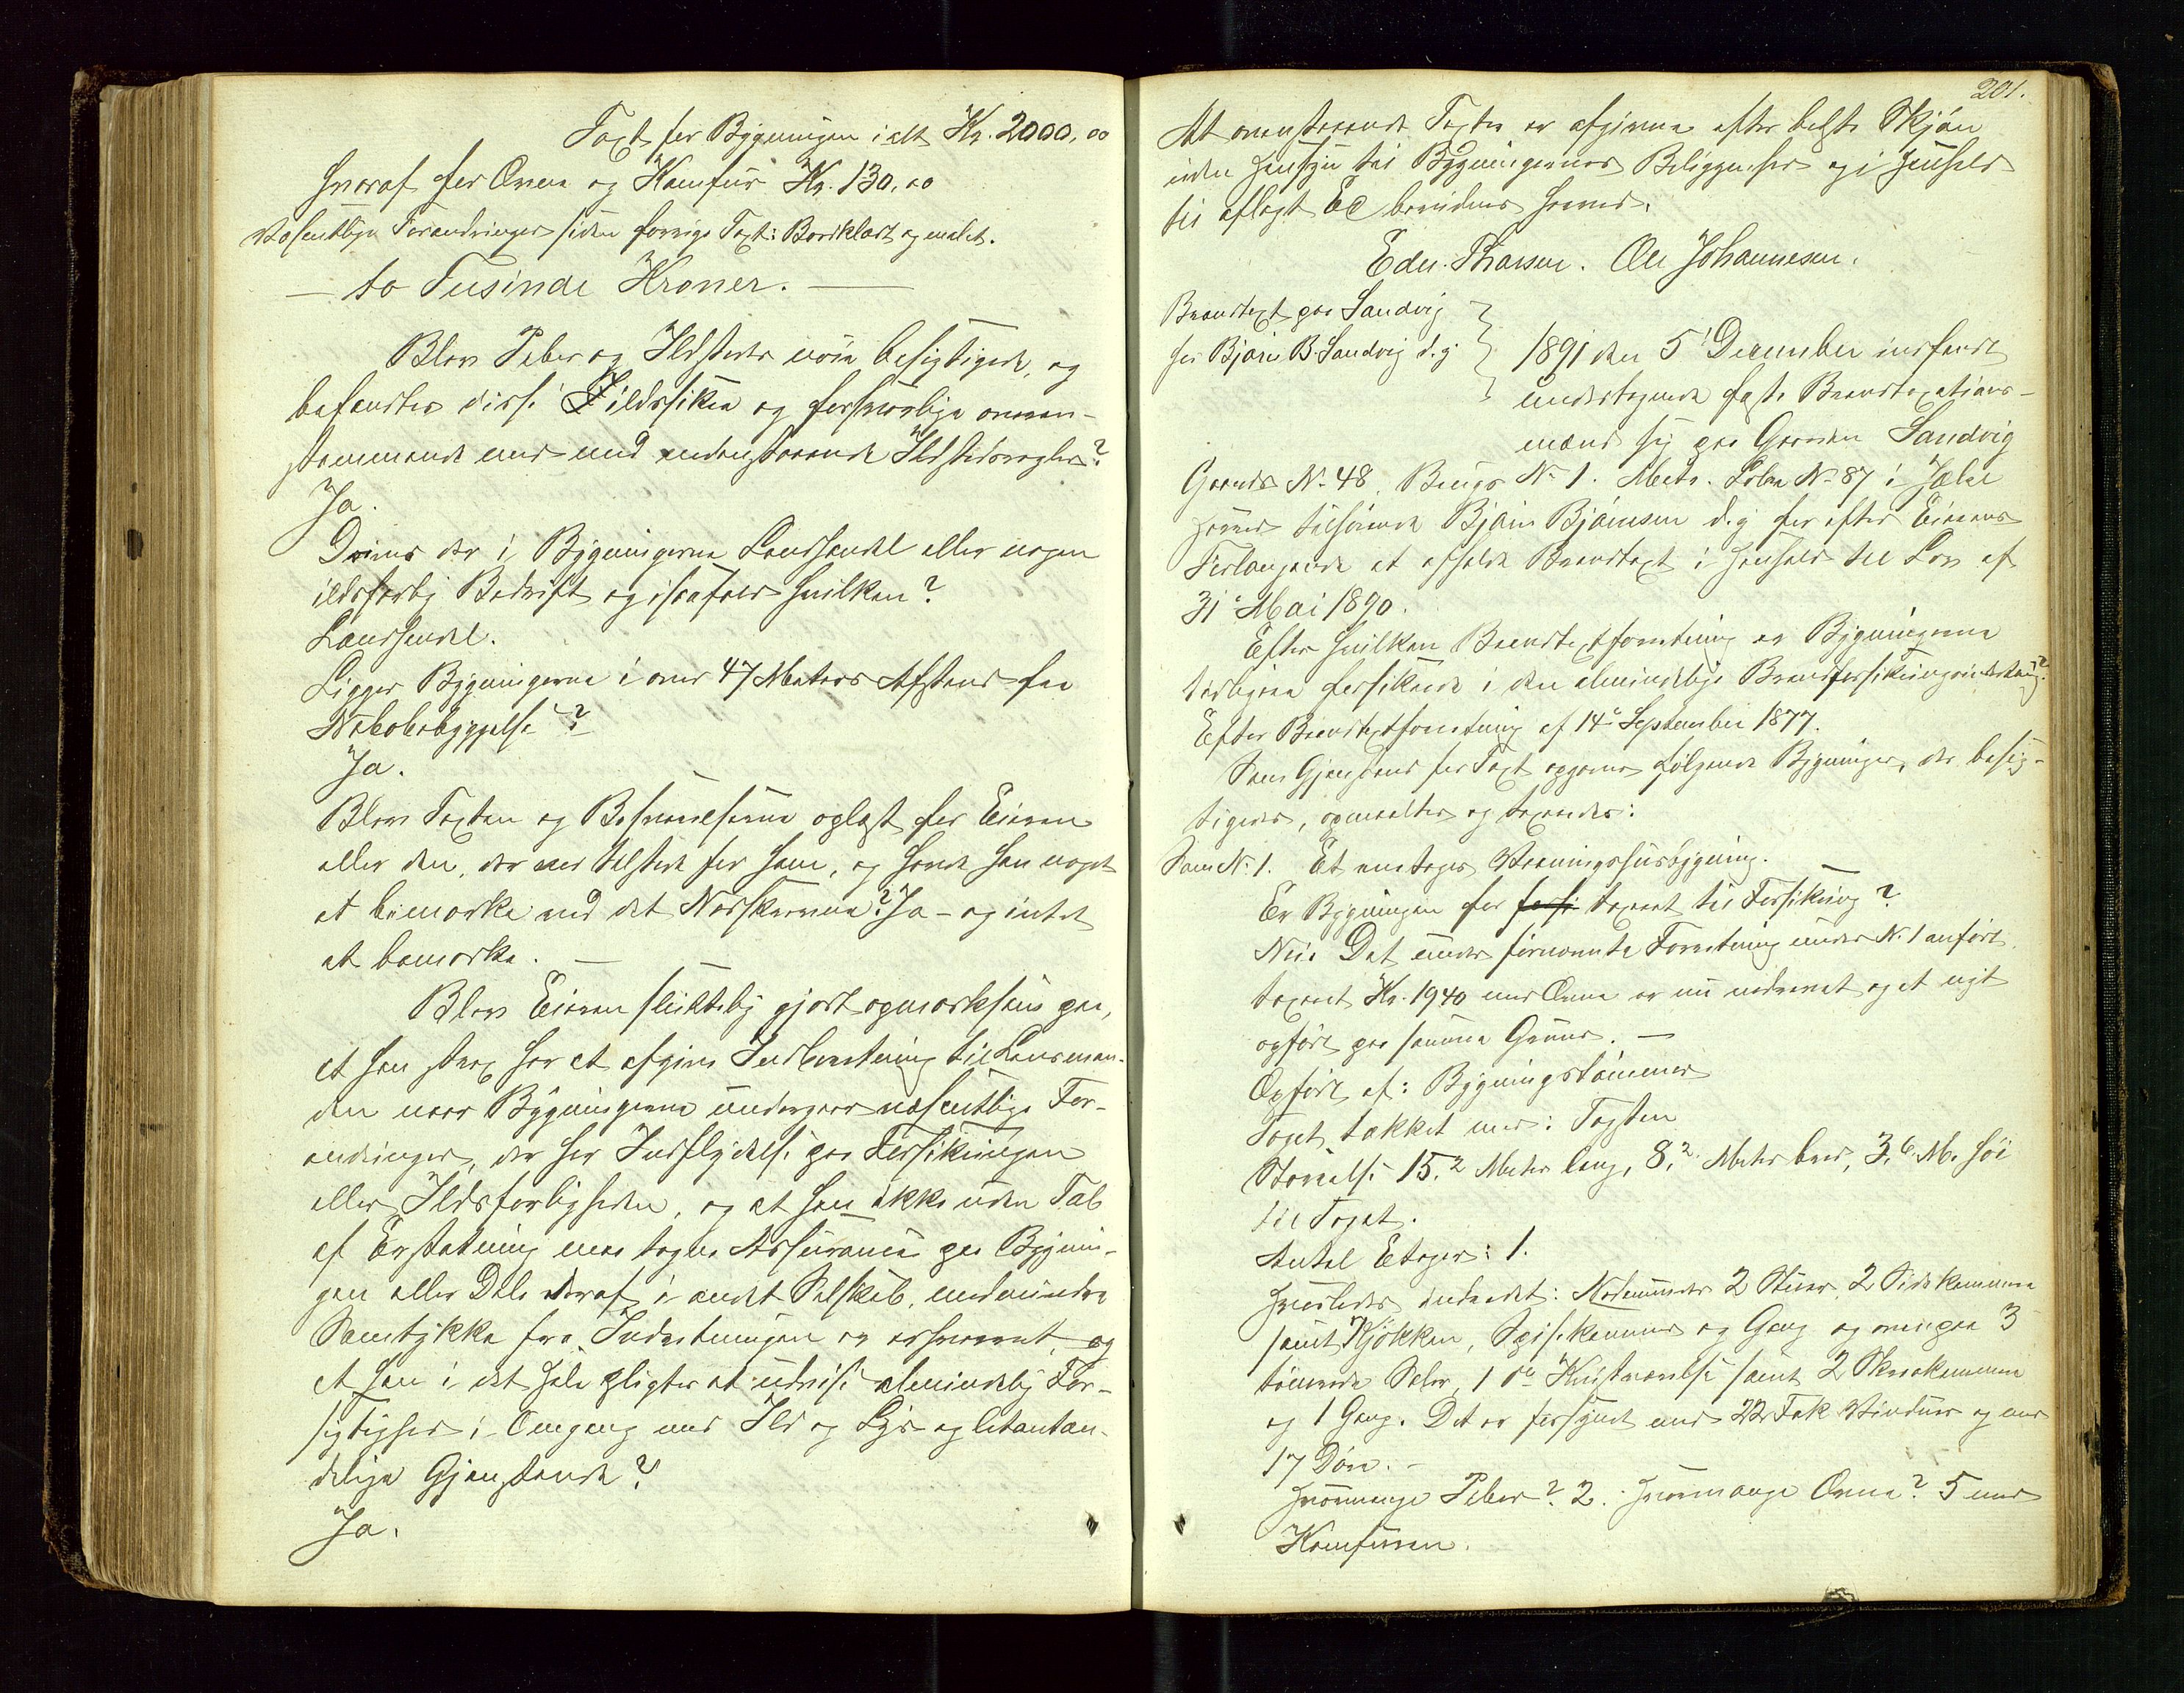 Taxt for Bygningen i alt Kr. 2000,00
hvoraf for Ovne og Komfur Kr. 130,00
Væsentlige Forandringer siden forrige Taxt: Bordklædt og malet.
— to Tusinde Kroner. —
Blev Peber og Ildsteder nøie besigtigede, og
befandtes disse ildssikre og forsvarlige overens-
stemmende med nedenstaaende Ildstedsregler?
Ja.
Drives der i Bygningerne Landhandel eller nogen
ildsfarlig Bedrift og isaafald hvilken?
Landhandel.
Ligger Bygningerne i over 47 Meters Afstand fra
Nabobebyggelse?
Ja.
Blev Taxten og Besvarelserne oplæst for Eieren
eller den, der var tilstede for ham, og havde han noget
at bemærke ved det Nedskrevne? Ja – og intet
at bemærke. —
Blev Eieren skriftelig gjort opmærksom paa,
at han strax har at afgive Indberetning til Lensman-
den naar Bygningerne undergaar væsentlige For-
andringer, der har Indflydelse paa Forsikringen
eller Ildsfarligheden, og at han ikke uden Tab
af Erstatning maa tegne Assurance paa Bygnin-
gen eller Dele deraf i andet Selskab, medmindre
Samtykke fra Indretningen er erhvervet, og
at han i det Hele pligter at udvise almindelig For-
sigtighed i Omgang med Ild og Lys og letantæn-
delige Gjenstande?
Ja.
201.
At ovenstaaende Taxter er afgivne efter bedste Skjøn
uden Hensyn til Bygningernes Beliggenhed og i Henhold
til aflagt Ed bevidnes herved.
Edv. Thorsen. Ole Johannesen.
Brandtaxt paa Sandvig
for Bjørn B. Sandvig d.y.
1891 den 5' December indfandt
undertegnede faste Brandtaxations-
mænd sig paa Gaarden Sandvig
Gaards No 48, Brugs No 1. Matr. Løbe No 87 i Jælse
Herred tilhørende Bjørn Bjørnsen d.y. for efter Eierens
Forlangende at afholde Brandtaxt i Henhold til Lov af
31te Mai 1890.
Efter hvilken Brandtaxtforretning er Bygningerne
tidligere forsikrede i den almindelige Brandforsikringsindretning?
Efter Brandtaxtforretning af 14de September 1877.
Som Gjenstand for Taxt opgaves følgende Bygninger, der besig-
tigedes, opmaaltes og taxeredes:
Som No 1. Et enetages Vaaningshusbygning.
Er Bygningen før taxeret til Forsikring?
Nei. Det under førnævnte Forretning under No 1 anført
taxeret Kr. 1940 med Ovne er nu nedrevet og et nyt
opført paa samme Grund. —
Opført af: Bygningstømmer
Taget tækket med: Tagsten
Størrelse 15,2 Meter lang, 8,2 Meter bred, 3,6 M. høi
til Taget.
Antal Etager: 1.
Hvorledes indredet: Nedenunder 2 Stuer, 2 Sidekammere
samt Kjøkken, Spisekammer og Gang og ovenpaa 3
tømrede Saler, 1 do Kvistværelse samt 2 Skraakammere
og 1 Gang. Det er forsynet med 22 Fak Vinduer og med
17 Døre. –
Hvormange Peber? 2. Hvormange Ovne? 5 med
Komfuren.